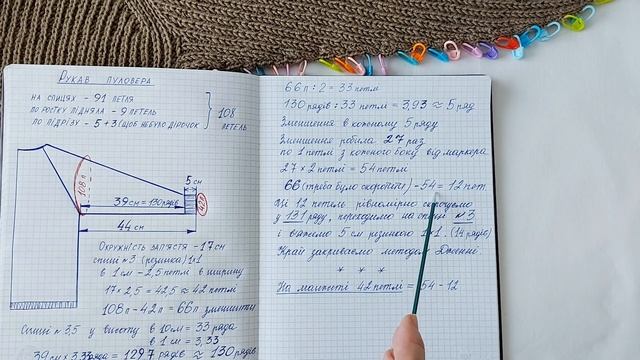 РУКАВ ПУЛОВЕРА
НА СПИЦЯХ - 91 ПЕТЛЯ
ПО РОСТКУ ПІДНЯЛА - 9 ПЕТЕЛЬ
ПО ПІДРІЗУ - 5 + 3 (ЩОБ НЕ БУЛО ДІРОЧОК)
108 ПЕТЕЛЬ
108 п
5 см
39 см = 130 рядів
42п
44 см
ОКРУЖНІСТЬ ЗАП'ЯСТЯ - 17 см
спиці №3 (резинка) 1х1
в 1 см - 2,5 петлі в ширину
17 × 2,5 = 42,5 ≈ 42 петлі
108 п - 42 п = 66 п зменшити
Спиці №3,5 у висоту в 10 см = 33 ряда
в 1 см = 3,33
= 129,7 рядів ≈ 130 рядів
66 п : 2 = 33 петлі
130 рядів : 33 петлі = 3,93 ≈ 5 ряд
Зменшення в кожному 5 ряду
Зменшення робила 27 раз
по 1 петлі з кожного боку від маркера
27 × 2 петлі = 54 петлі
66 (треба було скоротити) - 54 = 12 пет.
Ці 12 петель рівномірно скорочуємо
у 131 ряду, переходимо на спиці №3
і в'яжемо 5 см резинкою 1х1. (14 рядів)
Край закриваємо методом Дженні.
* * *
На манжеті 42 петлі = 54 - 12